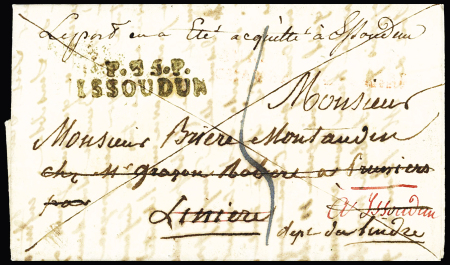 Le port en a Eté acquitté à Issoudun
P.35.P.
ISSOUDUN
Monsieur
Monsieur Brière Montaudin
chez Mr Robert à Pruniers
par
Liniere
à Issoudun
dept de Lindre